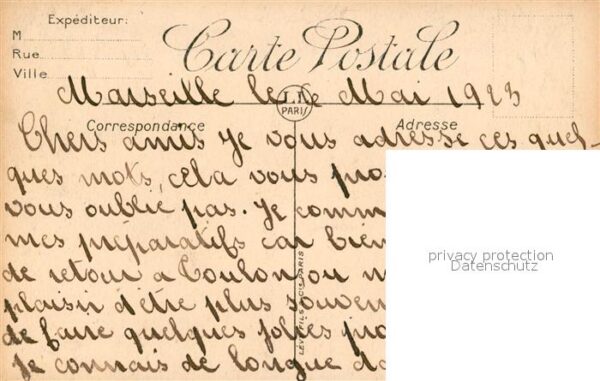 Expéditeur:
M
Rue
Ville
Carte Postale
Marseille le Mai 1923
LL
PARIS
Correspondance
Adresse
Chers amis Je vous adresse ces quel-
ques mots, cela vous pro
vous oublie pas. Je comm
mes préparatifs car bien
de retour a Toulon ou
plaisir d'être plus souven
de faire quelques jolies pro
Je connais de longue da
LEVY FILS & Cie PARIS
privacy protection
Datenschutz